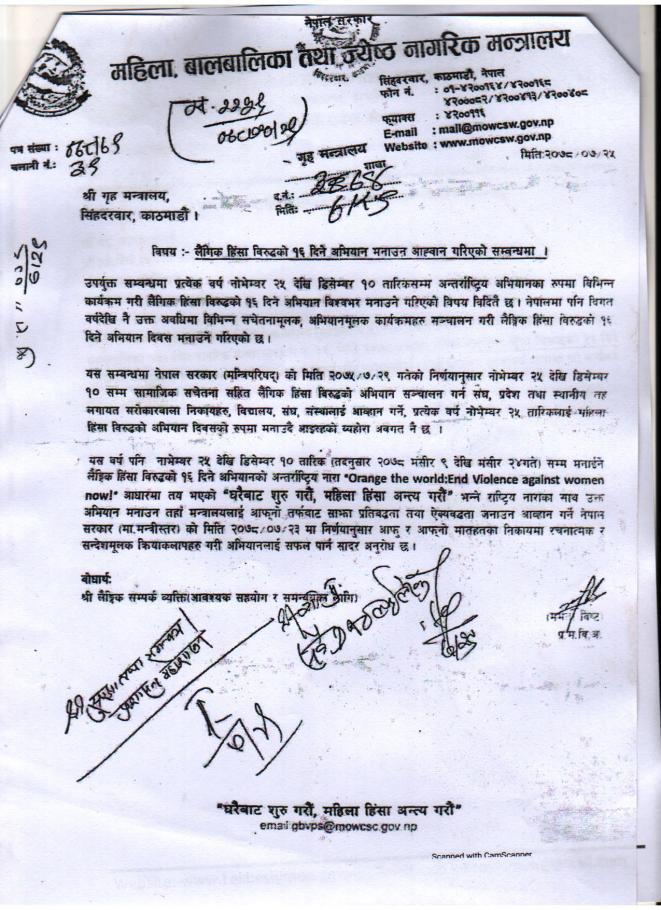 नेपाल सरकार
महिला, बालबालिका तथा ज्येष्ठ नागरिक मन्त्रालय
सिंहदरवार, काठमाडौं, नेपाल
फोन नं. : ०१-४२००१६४/४२००१६८
४२०००८२/४२००४१३/४२००४०८
फ्याक्स : ४२००११६
E-mail : mail@mowcsw.gov.np
Website : www.mowcsw.gov.np
पत्र संख्या :
चलानी नं.: ३९
गृह मन्त्रालय
शाखा
द.नं.:
मितिः
मितिः२०७८/०७/२५
श्री गृह मन्त्रालय,
सिंहदरवार, काठमाडौं ।
विषय :- लैंगिक हिंसा विरुद्धको १६ दिने अभियान मनाउन आह्वान गरिएको सम्बन्धमा ।
उपर्युक्त सम्बन्धमा प्रत्येक वर्ष नोभेम्बर २५ देखि डिसेम्बर १० तारिकसम्म अन्तर्राष्ट्रिय अभियानका रुपमा विभिन्न
कार्यक्रम गरी लैंगिक हिंसा विरुद्धको १६ दिने अभियान विश्वभर मनाउने गरिएको विषय विदितै छ। नेपालमा पनि विगत
वर्षदेखि नै उक्त अवधिमा विभिन्न सचेतनामूलक, अभियानमूलक कार्यक्रमहरु सञ्चालन गरी लैङ्गिक हिंसा विरुद्धको १६
दिने अभियान दिवस मनाउने गरिएको छ ।
यस सम्बन्धमा नेपाल सरकार (मन्त्रिपरिषद्) को मिति २०७५/७/२९ गतेको निर्णयानुसार नोभेम्बर २५ देखि डिसेम्बर
१० सम्म सामाजिक सचेतना सहित लैंगिक हिंसा विरुद्धको अभियान सञ्चालन गर्न संघ, प्रदेश तथा स्थानीय तह
लगायत सरोकारवाला निकायहरु, विद्यालय, संघ, संस्थालाई आव्हान गर्ने, प्रत्येक वर्ष नोभेम्बर २५ तारिकलाई महिला
हिंसा विरुद्धको अभियान दिवसको रुपमा मनाउदै आइरहको व्यहोरा अवगत नै छ ।
यस वर्ष पनि नोभेम्बर २५ देखि डिसेम्बर १० तारिक (तदनुसार २०७८ मंसीर ९ देखि मंसीर २४गते) सम्म मनाईने
लैङ्गिक हिंसा विरुद्धको १६ दिने अभियानको अन्तर्राष्ट्रिय नारा "Orange the world:End Violence against women
now!" आधारमा तय भएको "घरैबाट शुरु गरौं, महिला हिंसा अन्त्य गरौं" भन्ने राष्ट्रिय नाराका साथ उक्त
अभियान मनाउन तहाँ मन्त्रालयलाई आफ्नो तर्फबाट साझा प्रतिबद्धता तथा ऐक्यबद्धता जनाउन आव्हान गर्ने नेपाल
सरकार (मा.मन्त्रीस्तर) को मिति २०७८/०७/२३ मा निर्णयानुसार आफु र आफ्नो मातहतका निकायमा रचनात्मक र
सन्देशमूलक क्रियाकलापहरु गरी अभियानलाई सफल पार्न सादर अनुरोध छ ।
बोधार्थः
श्री लैङ्गिक सम्पर्क व्यक्ति(आवश्यक सहयोग र समन्वयका लागि)
विष्ट)
प्र.म.वि.अ.
"घरैबाट शुरु गरौं, महिला हिंसा अन्त्य गरौं"
email:gbvps@mowcsc.gov.np
Scanned with CamScanner